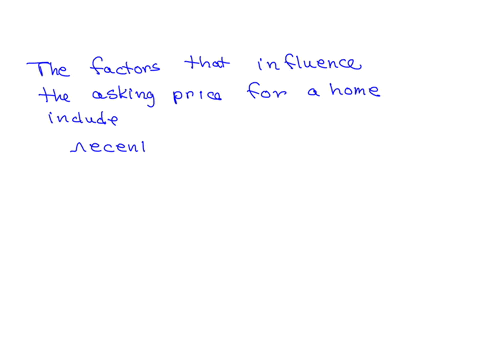 The factors that influence
the asking price for a home
include
recent